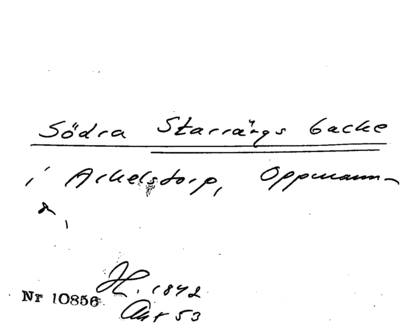 Södra Starrängs backe
i Arkelstorp, Oppmanna
s,
H. 1842
Nr 10856
Akt 53